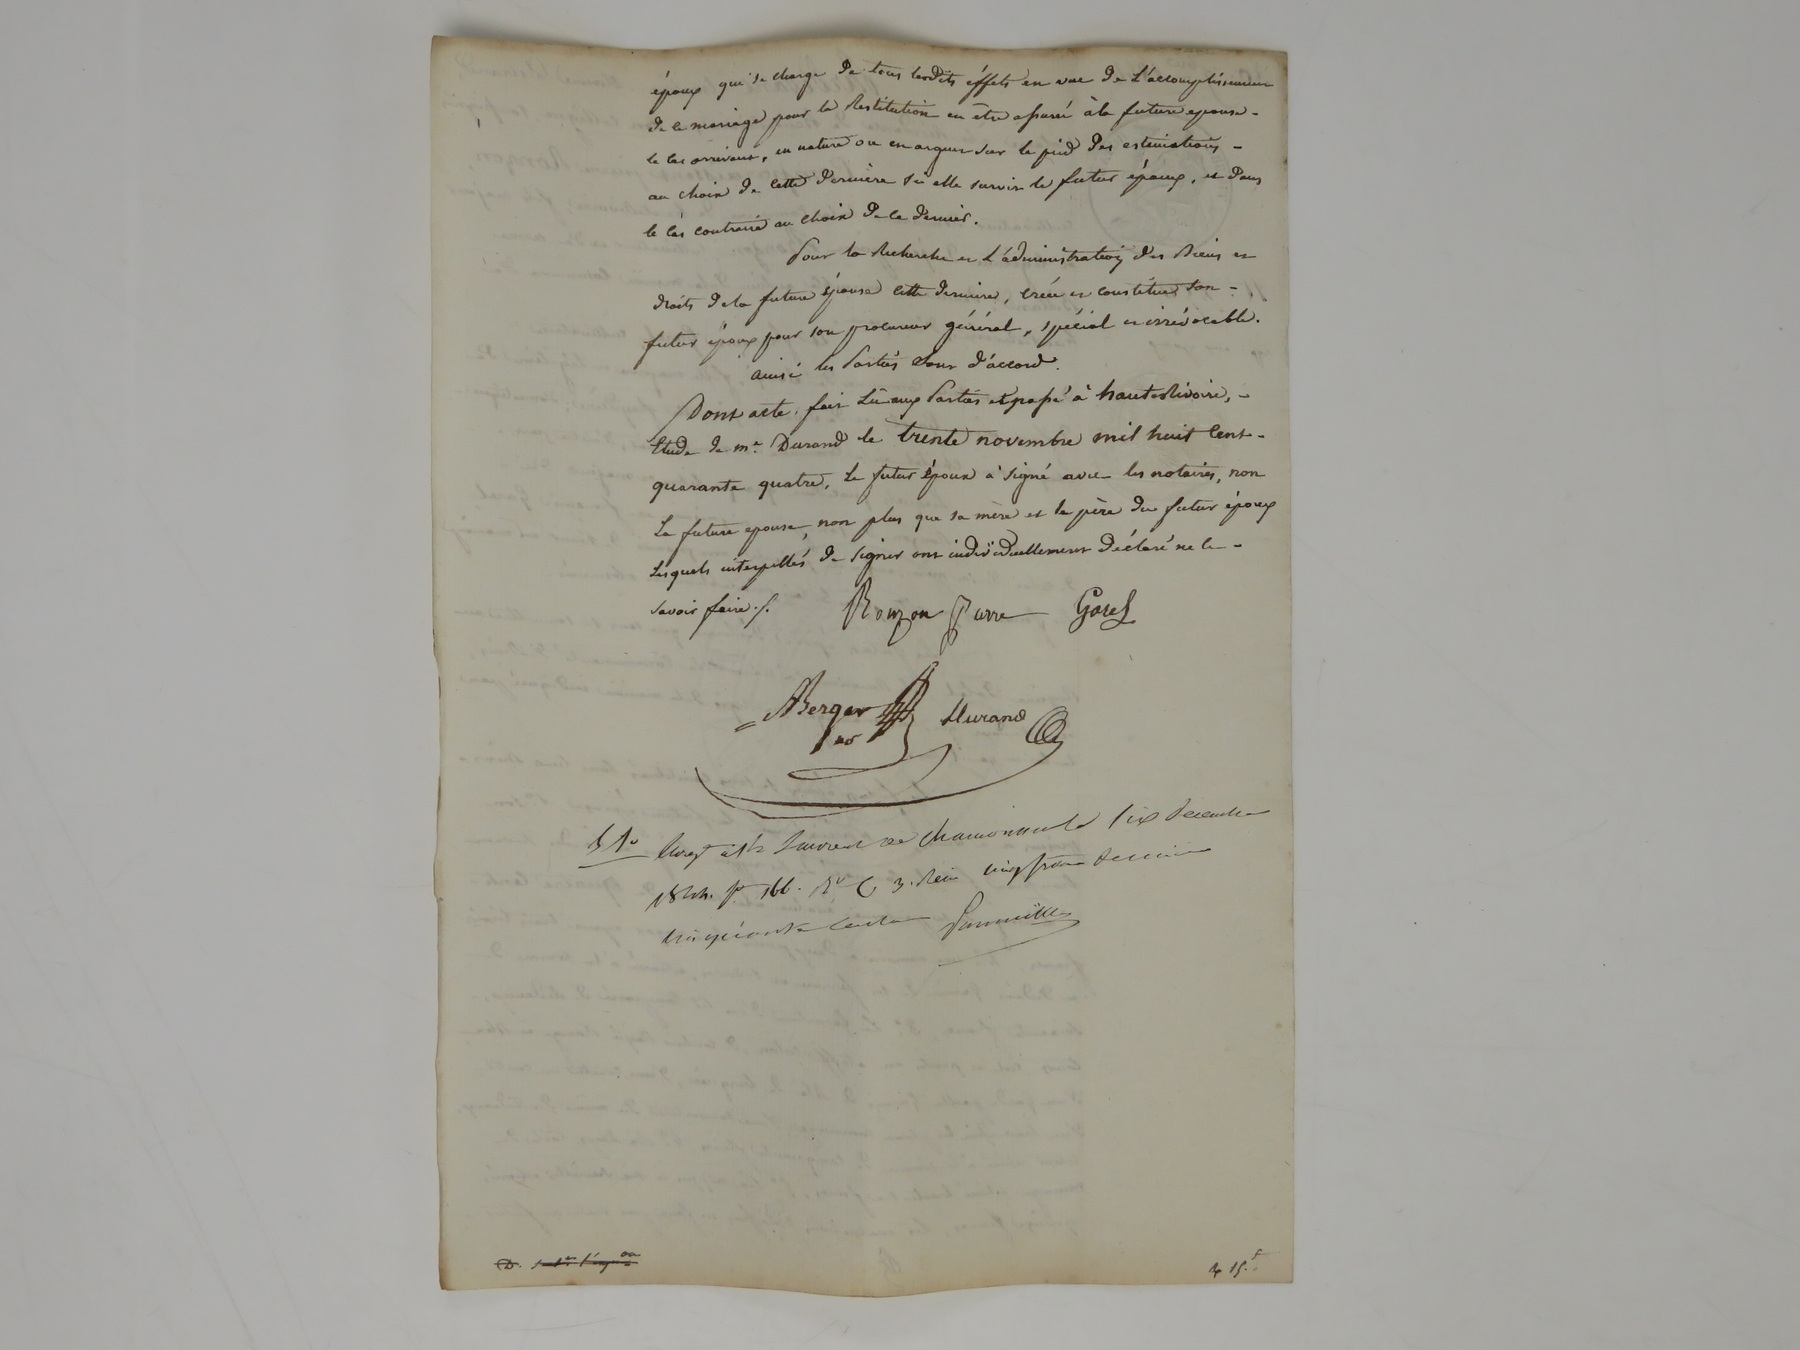 époux qui se charge de tous lesdits éffets en vue de L'accomplissement
de ce mariage pour la Restitution en être assurée à la future epouse -
le cas arrivant, en nature ou en argent sur le pied des estimations -
au choix de cette dernière si elle survit le futur époux, et dans
le cas contraire au choix de ce dernier.
Pour la Recherche et L'administration des Biens et
droits de la future épouse cette dernière, créée et constitue son -
futur époux pour son procureur général, spécial et irrévocable.
ainsi les Parties sont d'accord.
Dont acte, fait Lu aux Parties et passé à hauterivoire, -
Etude de me. Durand le trente novembre mil huit Cent -
quarante quatre, Le futur époux à signé avec les notaires, non
La future epouse, non plus que sa mère et le père du futur époux
Lesquels interpellés de signer ont individuellement déclaré ne le -
savoir faire ./.
Ronzon Pierre Gorel
ABerger Durand
nre
Enregt à St Laurent de Chamousset le six décembre
1844. fo 166. Ro C 3. Reçu cinq francs décime
cinquante centes
4 15.